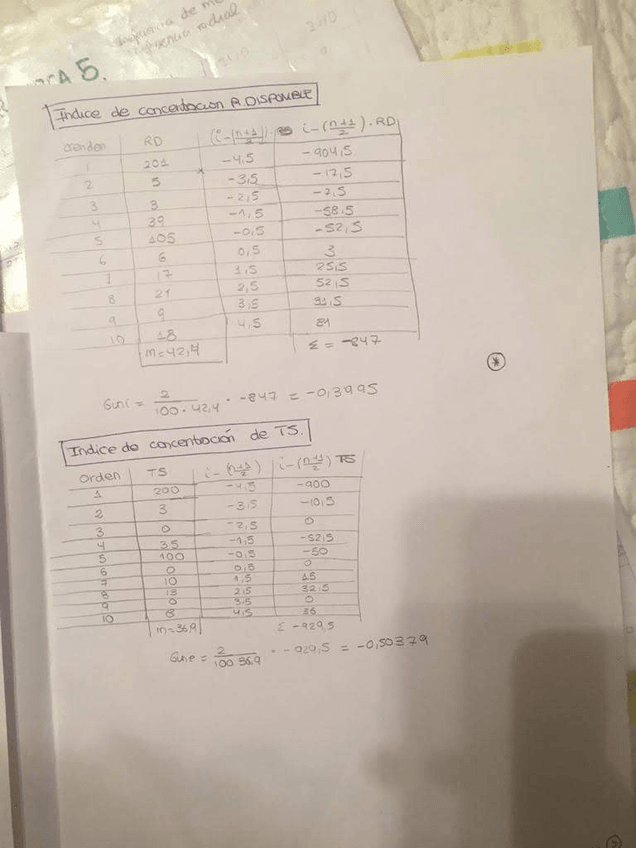 radual
2010
5.
Indice de concentracion R. DISPONIBLE
orden RD (i-(n+1/2)) i-(n+1/2).RD
1 201 -4,5 -904,5
2 5 -3,5 -17,5
3 -2,5 -2,5
4 39 -1,5 -58,5
5 105 -0,5 -52,5
6 6 0,5 3
17 1,5 25,5
8 21 2,5 52,5
9 9 3,5 31,5
10 18 4,5 81
m=42,4 Σ = -847
*
Gini = 2/100.42,4 . -847 = -0,3995
Indice de concentración de TS.
Orden TS i-(n+1/2) i-(n+1/2) TS
1 200 -4,5 -900
2 3 -3,5 -10,5
3 0 -2,5 0
4 35 -1,5 -52,5
5 100 -0,5 -50
6 0 0,5 0
7 10 1,5 15
8 13 2,5 32,5
9 0 3,5 0
10 8 4,5 36
m=36,9 Σ -929,5
= 2/100 36,9 . -929,5 = -0,50379